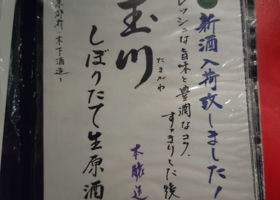 新酒入荷致しました!
フレッシュな旨味と豊潤なコク、
すっきりした後
玉川
たまがわ
本醸造
しぼりたて生原酒
木下酒造